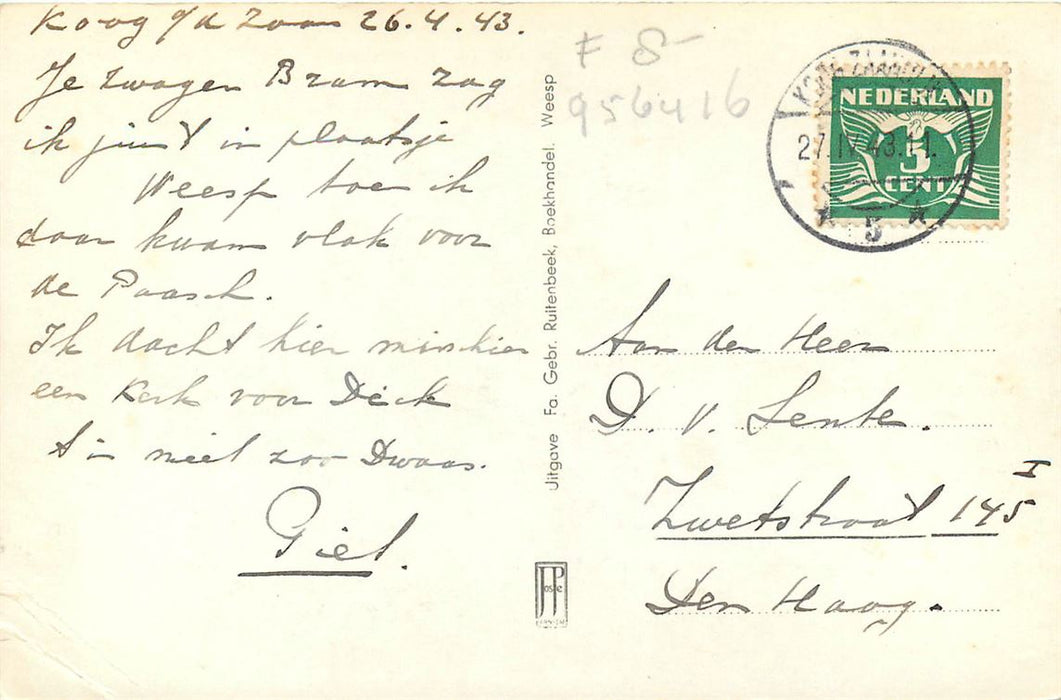 Koog a/d Zaan 26.4.43.
Je zwager Bram zag
ik juist in plaatsje
Weesp toen ik
daar kwam vlak voor
de Paasch.
Ik dacht hier misschien
een Kerk voor Dick
is niet zoo Dwaas.
Giel.
F 8-
956416
Uitgave Fa. Gebr. Ruitenbeek, Boekhandel. Weesp
JosPe
ARNHEM
KOOG-ZAANDIJK
27.IV.43.11.
5
NEDERLAND
5
CENT
Aan den Heer
D. v. Lente.
Zwetstraat 145 I
Den Haag.